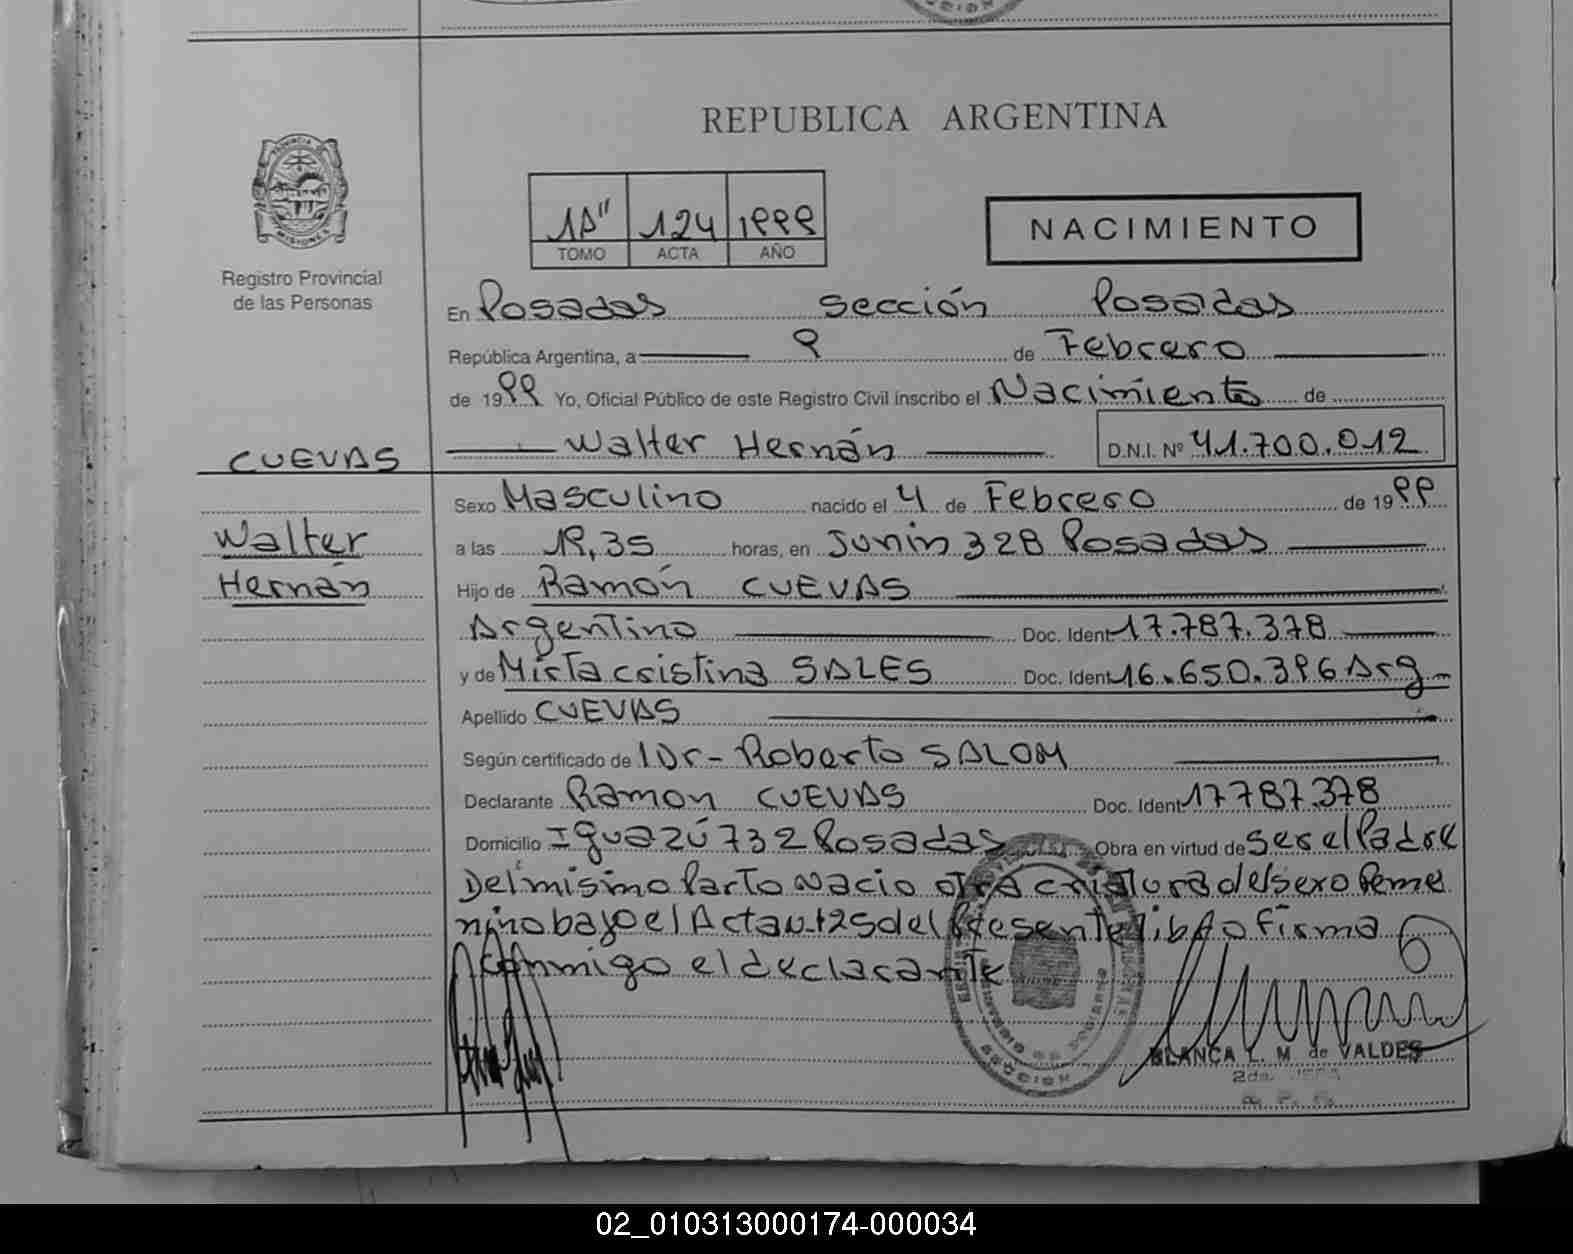 REPUBLICA ARGENTINA
PROVINCIA DE
MISIONES
Registro Provincial
de las Personas
1A" 124 1999
TOMO ACTA AÑO
NACIMIENTO
En Posadas Sección Posadas
República Argentina, a 9 de Febrero
de 1999 Yo, Oficial Público de este Registro Civil inscribo el Nacimiento de
CUEVAS Walter Hernán D.N.I. Nº 41.700.012
Sexo Masculino nacido el 4 de Febrero de 1999
Walter
a las 19,35 horas, en Junin 328 Posadas
Hernán
Hijo de Ramón CUEVAS
Argentino Doc. Ident 17.787.378
y de Mirta cristina SALES Doc. Ident 16.650.396 Arg
Apellido CUEVAS
Según certificado de 1 Dr- Roberto SALOM
Declarante Ramon CUEVAS Doc. Ident 17787.378
Domicilio Iguazú 732 Posadas Obra en virtud de Ser el Padre
Del mismo Parto Nacio otra criatura del sexo Feme
nino bajo el Acta N-125 del Presente libro Firma
Conmigo el declarante
BLANCA L. M de VALDES
2da. JEFA
02_010313000174-000034